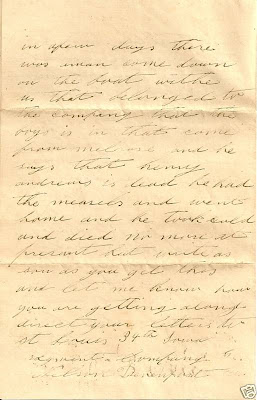 in a few days there
was a man come down
on the boat withe
us that belonged to
the company that the
boys is in that come
from mel one and he
says that henry
andrews is dead he had
the measees and went
home and he took cold
and died no more at
present but write as
son as you get this
and let me know how
you are getting along
direct your letters to
st Louis 34th Iowa
regment Company
Davenport